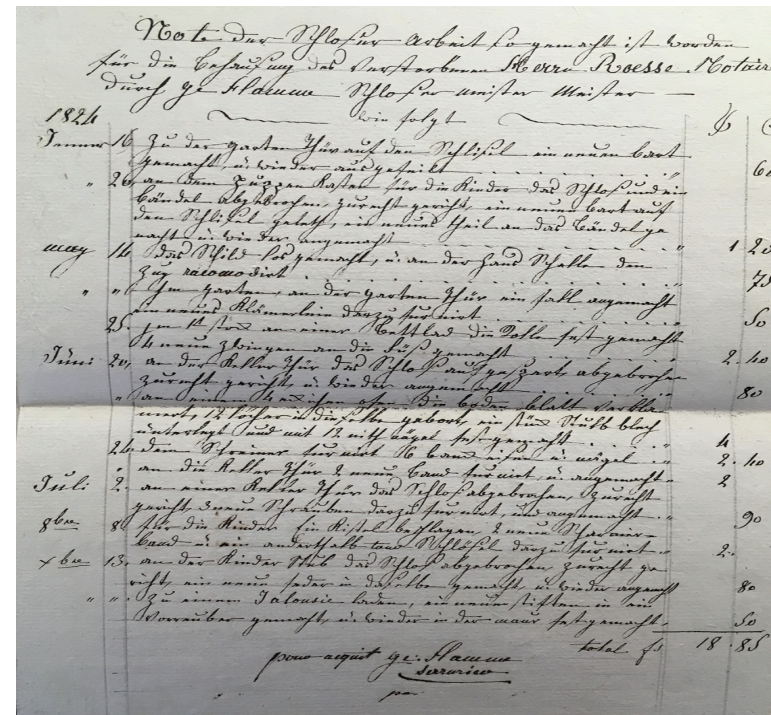 Note der Schloser Arbeit so gemacht ist worden
für die Behausung des Verstorbenen Herrn Roesse Notair
durch ge Flamme Schloser meister Meister —
wie folgt
1824 ₶ C
Jenner 16 Zu der garten Thür auf den Schlißel ein neuen bart
gemacht, u wieder aus gefeilt " 60
" 26, an dem puppen Kasten für die Kinder das Schloß und ein
Bändel abgebrochen, zurecht gericht, ein neuen bart auf
den Schlißel geleth, ein neues theil an das Bändel ge
macht u wieder angemacht " 1 20
may 14 das Schild los gemacht, u an der Haus Schelle den
Zug racomodirt 75
" " Im garten, an der garten Thür ein fall angemacht
ein neues Klämerlein darzu furnirt 50
25. im 1t stok an einer Bettlad die fest gemacht
4 neue an die füß gemacht 2. 40
Jüni 20, an der Keller Thür das Schloß auf gespert, abgebrochen
zurecht gericht u wieder angemacht 80
" an einem ofen die boden blatt
12 löcher in dieselbe gebort, ein stük blech
unterlegt und mit 12 nith nägel fest gemacht " 4
24. dem Schreiner furnirt 16 band eisen u nägel " 2. 40
" an die Keller Thür 2 neue band furnirt, u angemacht " 2
Juli 2. an einer Keller Thür das Schloß abgebrochen, zurecht
gericht, neue Schrauben darzu furnirt, und angemacht " 90
8bre 8 für die Kinder Ein Kistel beschlagen, 2 neue Scharnier-
band u ein anderthalb Schlößel darzu furnirt " 2.
xbre 13. an der Kinder Stub das Schloß abgebrochen, zurecht ge
richt, ein neue feder in daselbe gemacht u wieder angemacht 80
" " Zu einem Jalousie laden, ein neuen stiften in ein
Vorreuber gemacht, u wieder in der maur fest gemacht 50
total fs 18. 85
pour acquit ge: Flamme
serurier